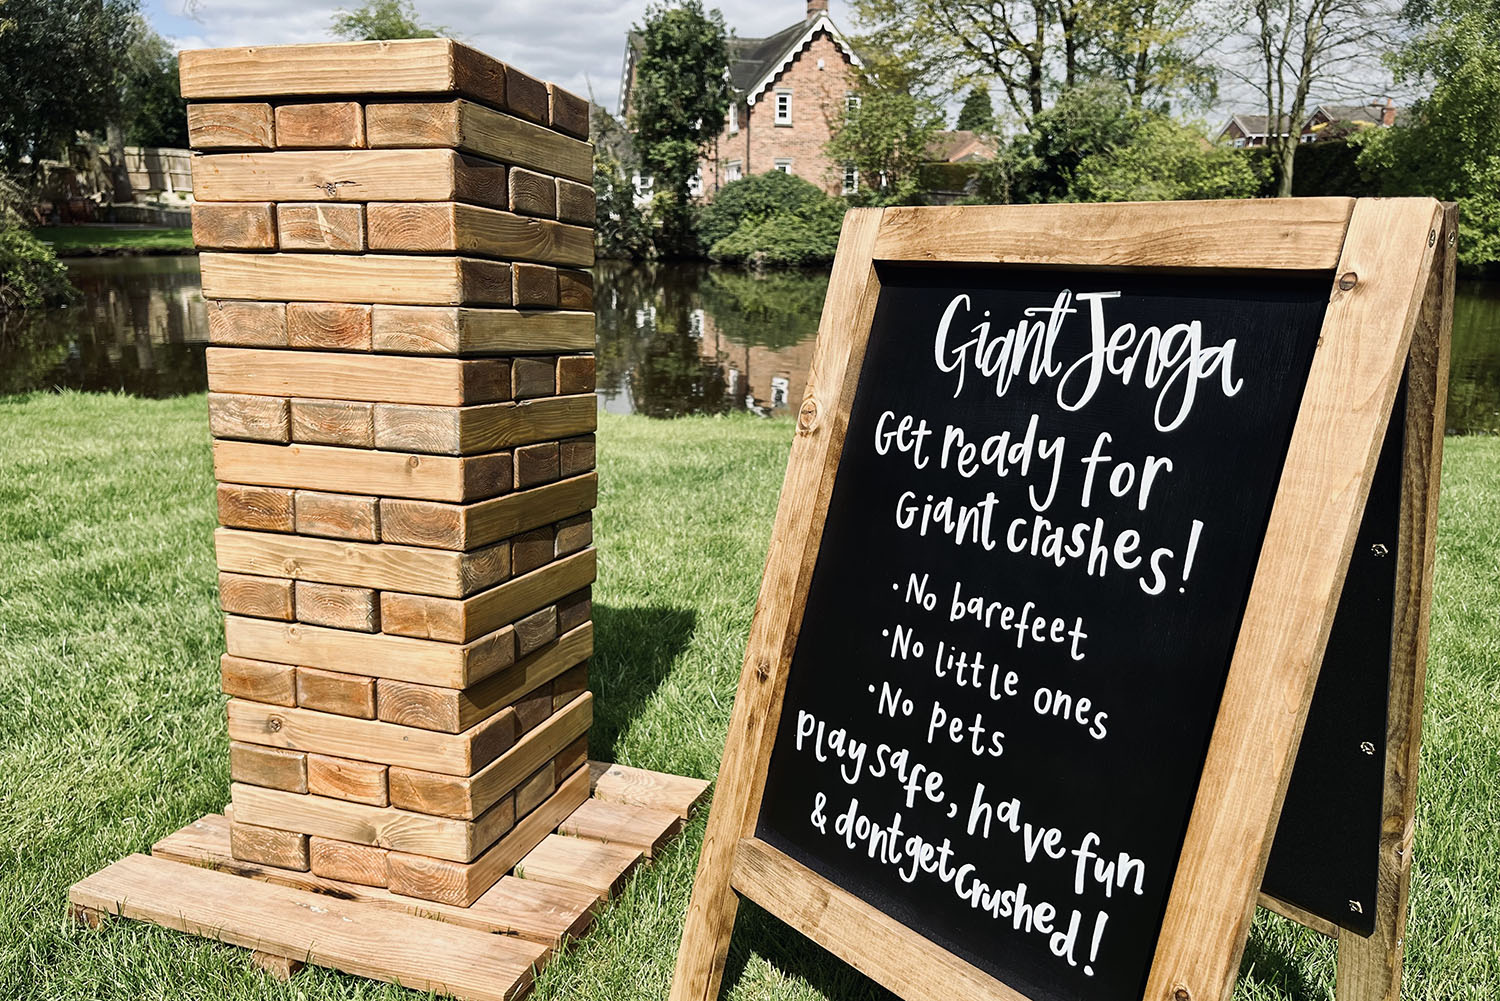 Giant Jenga
Get ready for
Giant crashes!
• No barefeet
• No little ones
• No pets
Play safe, have fun
& dont get crushed!